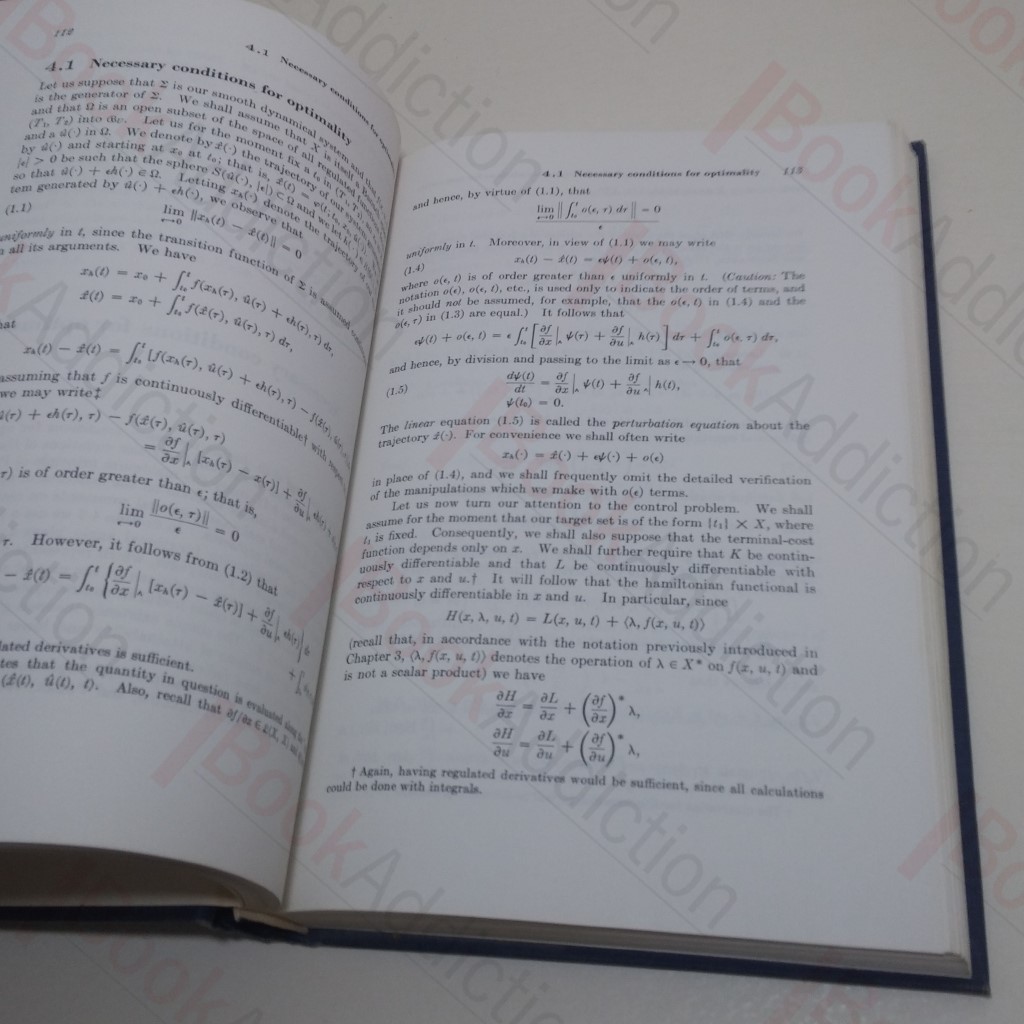 112
4.1 Necessary conditions for optimality
4.1 Necessary conditions for optimality
Let us suppose that Σ is our smooth dynamical system and that
is the generator of Σ. We shall assume that X is itself a
and that Ω is an open subset of the space of all regulated functions
(T₁, T₂) into Let us for the moment fix a t₀ in (T₁, T₂)
and a û(·) in Ω. We denote by x̂(·) the trajectory of our system
by û(·) and starting at x₀ at t₀; that is, x̂(t)
|ε| > 0 be such that the sphere S(û(·), |ε|) ⊂ Ω and we let
so that û(·) + εh(·) ∈ Ω. Letting xₕ(·) denote the trajectory of our
tem generated by û(·) + εh(·), we observe that
(1.1) lim ε→0 ||xₕ(t) − x̂(t)|| = 0
uniformly in t, since the transition function of Σ is assumed
all its arguments. We have
xₕ(t) = x₀ + ∫ₜ₀ᵗ f(xₕ(τ), û(τ) + εh(τ), τ) dτ,
x̂(t) = x₀ + ∫ₜ₀ᵗ f(x̂(τ), û(τ), τ) dτ,
xₕ(t) − x̂(t) = ∫ₜ₀ᵗ [f(xₕ(τ), û(τ) + εh(τ), τ) − f(x̂(τ), û(τ),
assuming that f is continuously differentiable† with
we may write‡
û(τ) + εh(τ), τ) − f(x̂(τ), û(τ), τ)
= ∂f/∂x|∧ [xₕ(τ) − x(τ)] + ∂f/∂u|∧ εh(τ)
τ) is of order greater than ε; that is,
lim ε→0 ||o(ε, τ)||/ε = 0
τ. However, it follows from (1.2) that
− x̂(t) = ∫ₜ₀ᵗ {∂f/∂x|∧ [xₕ(τ) − x̂(τ)] + ∂f/∂u|∧ εh(τ)} dτ
lated derivatives is sufficient.
tes that the quantity in question is evaluated along the
(x̂(t), û(t), t). Also, recall that ∂f/∂x ∈ £(X, X)
4.1 Necessary conditions for optimality 113
and hence, by virtue of (1.1), that
lim ε→0 ||∫ₜ₀ᵗ o(ε, τ) dτ||/ε = 0
uniformly in t. Moreover, in view of (1.1) we may write
(1.4) xₕ(t) − x̂(t) = εψ(t) + o(ε, t),
where o(ε, t) is of order greater than ε uniformly in t. (Caution: The
notation o(ε), o(ε, t), etc., is used only to indicate the order of terms, and
it should not be assumed, for example, that the o(ε, t) in (1.4) and the
o(ε, τ) in (1.3) are equal.) It follows that
εψ(t) + o(ε, t) = ε ∫ₜ₀ᵗ [∂f/∂x|∧ ψ(τ) + ∂f/∂u|∧ h(τ)] dτ + ∫ₜ₀ᵗ o(ε, τ) dτ,
and hence, by division and passing to the limit as ε → 0, that
(1.5) dψ(t)/dt = ∂f/∂x|∧ ψ(t) + ∂f/∂u∧| h(t),
ψ(t₀) = 0.
The linear equation (1.5) is called the perturbation equation about the
trajectory x̂(·). For convenience we shall often write
xₕ(·) = x̂(·) + εψ(·) + o(ε)
in place of (1.4), and we shall frequently omit the detailed verification
of the manipulations which we make with o(ε) terms.
Let us now turn our attention to the control problem. We shall
assume for the moment that our target set is of the form {t₁} × X, where
t₁ is fixed. Consequently, we shall also suppose that the terminal-cost
function depends only on x. We shall further require that K be contin-
uously differentiable and that L be continuously differentiable with
respect to x and u.† It will follow that the hamiltonian functional is
continuously differentiable in x and u. In particular, since
H(x, λ, u, t) = L(x, u, t) + ⟨λ, f(x, u, t)⟩
(recall that, in accordance with the notation previously introduced in
Chapter 3, ⟨λ, f(x, u, t)⟩ denotes the operation of λ ∈ X* on f(x, u, t) and
is not a scalar product) we have
∂H/∂x = ∂L/∂x + (∂f/∂x)* λ,
∂H/∂u = ∂L/∂u + (∂f/∂u)* λ,
† Again, having regulated derivatives would be sufficient, since all calculations
could be done with integrals.
BookAddiction